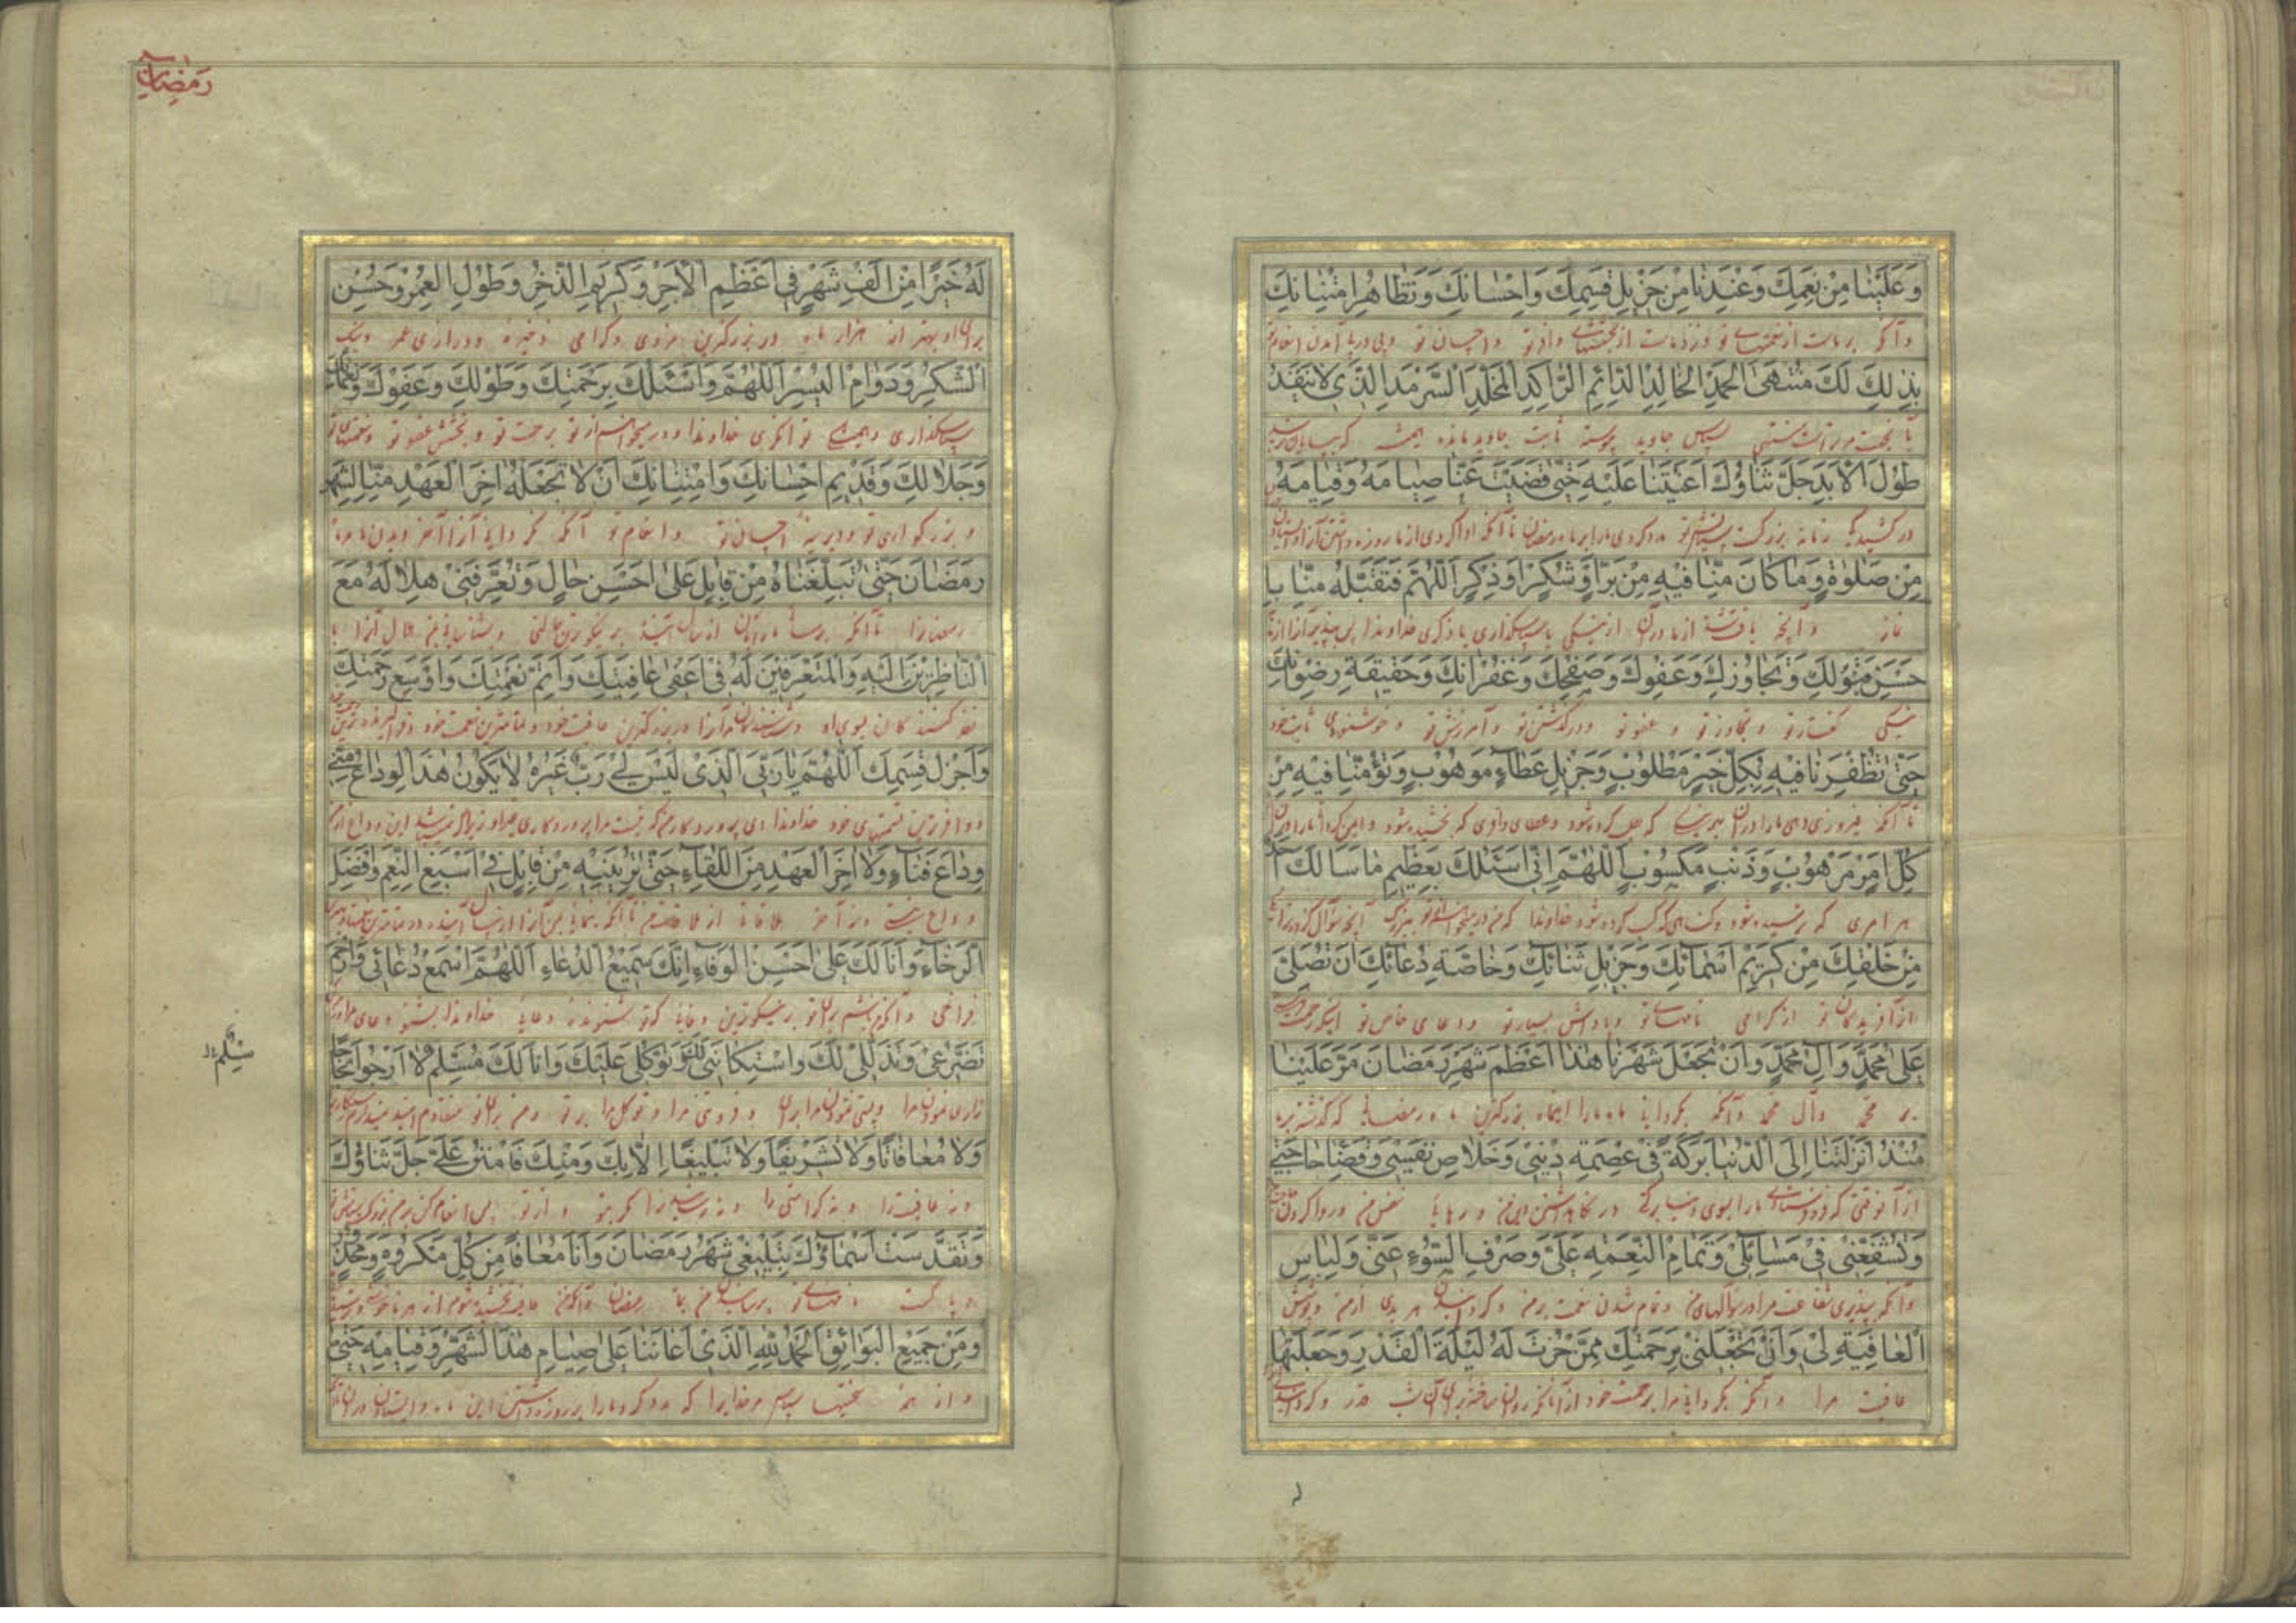 وَعَلَيْنَا مِنْ نِعَمِكَ وَعِنْدَنَا مِنْ جَزِيلِ قِسَمِكَ وَاِحْسَانِكَ وَتَظَاهُرِ امْتِنَانِكَ
وآنکه بر ماست از نعمتهای تو ونزد ماست از بخششهای وافر تو واحسان تو وپی در پی آمدن انعام تو
بِذٰلِكَ لَكَ مُنْتَهَى الْحَمْدِ الْخَالِدِ الدَّائِمِ الرَّاكِدِ الْمُخَلَّدِ السَّرْمَدِ الَّذِي لَا يَنْفَدُ
سپاس جاوید پیوسته ثابت جاوید مانده همیشه که
طُولَ الْاَبَدِ جَلَّ ثَنَاؤُكَ اَعَنْتَنَا عَلَيْهِ حَتّٰى قَضَيْتَ عَنَّا صِيَامَهُ وَقِيَامَهُ
زمانه بزرگست تو مدد کردی ما را بر ماه رمضان تا آنکه ادا کردی از ما روزه داشتن آنرا
مِنْ صَلٰوةٍ وَمَا كَانَ مِنَّا فِيهِ مِنْ بِرٍّ اَوْ شُكْرٍ اَوْ ذِكْرٍ اَللّٰهُمَّ فَتَقَبَّلْهُ مِنَّا بِاَ
نماز وآنچه از ما در آن از نیکی یا سپاسگذاری یا ذکری خداوندا پس بپذیر آنرا از ما
حْسَنِ قَبُولِكَ وَتَجَاوُزِكَ وَعَفْوِكَ وَصَفْحِكَ وَغُفْرَانِكَ وَحَقِيقَةِ رِضْوَانِكَ
وتجاوز تو و عفو تو ودر گذشتن تو وآمرزش تو وخوشنودی ثابت خود
حَتّٰى تُظْفِرَنَا فِيهِ بِكُلِّ خَيْرٍ مَطْلُوبٍ وَجَزِيلِ عَطَاءٍ مَوْهُوبٍ وَتُؤْمِنَنَا فِيهِ مِنْ
تا آنکه فیروزی دهی ما را در آن بهر نیکی که طلب کرده شود وعطای وافری که بخشیده شود وایمن گردانی ما را در آن از
كُلِّ اَمْرٍ مَرْهُوبٍ وَذَنْبٍ مَكْسُوبٍ اَللّٰهُمَّ اِنِّي اَسْئَلُكَ بِعَظِيمِ مَا سَاَلَكَ اَحَدٌ
هر امری که ترسیده شود وگناهی که کسب کرده شود خداوندا آنچه سؤال کرده ترا
مِنْ خَلْقِكَ مِنْ كَرِيمِ اَسْمَائِكَ وَجَزِيلِ ثَنَائِكَ وَخَاصَّةِ دُعَائِكَ اَنْ تُصَلِّيَ
از آفریدگان تو از گرامی نامهای تو بسیار تو ودعای خاص تو اینکه رحمت
عَلٰى مُحَمَّدٍ وَاٰلِ مُحَمَّدٍ وَاَنْ تَجْعَلَ شَهْرَنَا هٰذَا اَعْظَمَ شَهْرِ رَمَضَانَ مَرَّ عَلَيْنَا
بر محمد وآل محمد وآنکه بگردانی ماه ما را اینماه بزرگترین ماه رمضانی که گذشته بر ما
مُنْذُ اَنْزَلْتَنَا اِلَى الدُّنْيَا بَرَكَةً فِي عِصْمَةِ دِينِي وَخَلَاصِ نَفْسِي وَقَضَاءِ حَاجَتِي
از آنوقتی که فرو فرستادی ما را بسوی دنیا برکت در نگاهداشتن دین من و رهایی نفس من وروا کردن حاجت
وَتُشَفِّعَنِي فِي مَسَائِلِي وَتَمَامِ النِّعْمَةِ عَلَيَّ وَصَرْفِ السُّوءِ عَنِّي وَلِبَاسِ
وآنکه بپذیری شفاعت مرا در سؤالهای من وتمام شدن نعمت بر من وگردانیدن هر بدی از من وپوشش
الْعَافِيَةِ لِي وَاَنْ تَجْعَلَنِي بِرَحْمَتِكَ مِمَّنْ حُزْتَ لَهُ لَيْلَةَ الْقَدْرِ وَجَعَلْتَهَا
عافیت مرا وآنکه بگردانی مرا برحمت خود از آنانکه برای آن شب قدر وگردانیدی
رمضان
لَهُ خَيْرًا مِنْ اَلْفِ شَهْرٍ فِي اَعْظَمِ الْاَجْرِ وَكَرِيمِ الذُّخْرِ وَطُولِ الْعُمْرِ وَحُسْنِ
برای او بهتر از هزار ماه در بزرگترین مزدی وگرامی ذخیره ودرازی عمر ونیک
الشُّكْرِ وَدَوَامِ الْيُسْرِ اَللّٰهُمَّ وَاَسْئَلُكَ بِرَحْمَتِكَ وَطَوْلِكَ وَعَفْوِكَ وَنَعْمَائِكَ
سپاسگذاری وهمیشگی توانگری خداوندا ومیخواهم از تو برحمت تو وبخشش عفو تو ونعمتهای تو
وَجَلَالِكَ وَقَدِيمِ اِحْسَانِكَ وَامْتِنَانِكَ اَنْ لَا تَجْعَلَهُ اٰخِرَ الْعَهْدِ مِنَّا لِشَهْرِ
وبزرگواری تو ودیرینه احسان تو وانعام تو آنکه نگردانی آنرا آخر دیدن ما مر ماه
رَمَضَانَ حَتّٰى تُبَلِّغَنَاهُ مِنْ قَابِلٍ عَلٰى اَحْسَنِ حَالٍ وَتُعَرِّفَنِي هِلَالَهُ مَعَ
رمضانرا تا آنکه برسانی ما را بآن از سال آینده بر نیکوترین حالتی وبشناسانی بمن هلال آنرا با
النَّاظِرِينَ اِلَيْهِ وَالْمُتَعَرِّفِينَ لَهُ فِي اَعْفٰى عَافِيَتِكَ وَاَتَمِّ نِعْمَتِكَ وَاَوْسَعِ رَحْمَتِكَ
نظر کنندگان بسوی او وشناسندگان مر آنرا در بزرگترین عافیت خود وتمامترین نعمت خود
وَاَجْزَلِ قِسَمِكَ اَللّٰهُمَّ يَا رَبِّيَ الَّذِي لَيْسَ لِي رَبٌّ غَيْرُهُ لَا يَكُونُ هٰذَا الْوِدَاعُ مِنِّي
ووافرترین قسمتهای خود خداوندا ای پروردگارم که نیست مرا پروردگاری غیر او این وداع از من
وِدَاعَ فَنَاءٍ وَلَا اٰخِرَ الْعَهْدِ مِنَ اللِّقَاءِ حَتّٰى تُرِيَنِيهِ مِنْ قَابِلٍ فِي اَسْبَغِ النِّعَمِ وَاَفْضَلِ
وداع نیستی ونه آخر ملاقات از تا آنکه بنمایی بمن آنرا از سال آینده در تمامترین
الرَّخَاءِ وَاَنَا لَكَ عَلٰى اَحْسَنِ الْوَفَاءِ اِنَّكَ سَمِيعُ الدُّعَاءِ اَللّٰهُمَّ اسْمَعْ دُعَائِي وَارْحَمْ
فراخی وآنکه من باشم برای تو بر نیکوترین وفائی که تو شنونده دعایی خداوندا بشنو دعای مرا
تَضَرُّعِي وَتَذَلُّلِي لَكَ وَاسْتِكَانَتِي وَتَوَكُّلِي عَلَيْكَ وَاَنَا لَكَ مُسَلِّمٌ لَا اَرْجُو نَجَاحًا
زاری نمودن مرا وپستی نمودن مرا برای تو وفروتنی مرا وتوکل مرا بر تو ومن برای تو
سِلْم
وَلَا مُعَافَاةً وَلَا تَشْرِيفًا وَلَا تَبْلِيغًا اِلَّا بِكَ وَمِنْكَ فَامْنُنْ عَلَيَّ جَلَّ ثَنَاؤُكَ
ونه عافیت را ونه کرامتی را ونه رسانیدنرا مگر بتو واز تو پس انعام کن بر من
وَتَقَدَّسَتْ اَسْمَاؤُكَ بِتَبْلِيغِي شَهْرَ رَمَضَانَ وَاَنَا مُعَافًى مِنْ كُلِّ مَكْرُوهٍ وَمَحْذُورٍ
وپاکست نامهای تو برسانیدن من بماه رمضان وآنکه من عافیت بخشیده شوم از هر
وَمِنْ جَمِيعِ الْبَوَائِقِ اَلْحَمْدُ لِلّٰهِ الَّذِي اَعَانَنَا عَلٰى صِيَامِ هٰذَا الشَّهْرِ وَقِيَامِهِ حَتّٰى
واز همه سختیها سپاس مر خدایرا که مدد کرد ما را بر روزه داشتن این ماه وایستادن در آن